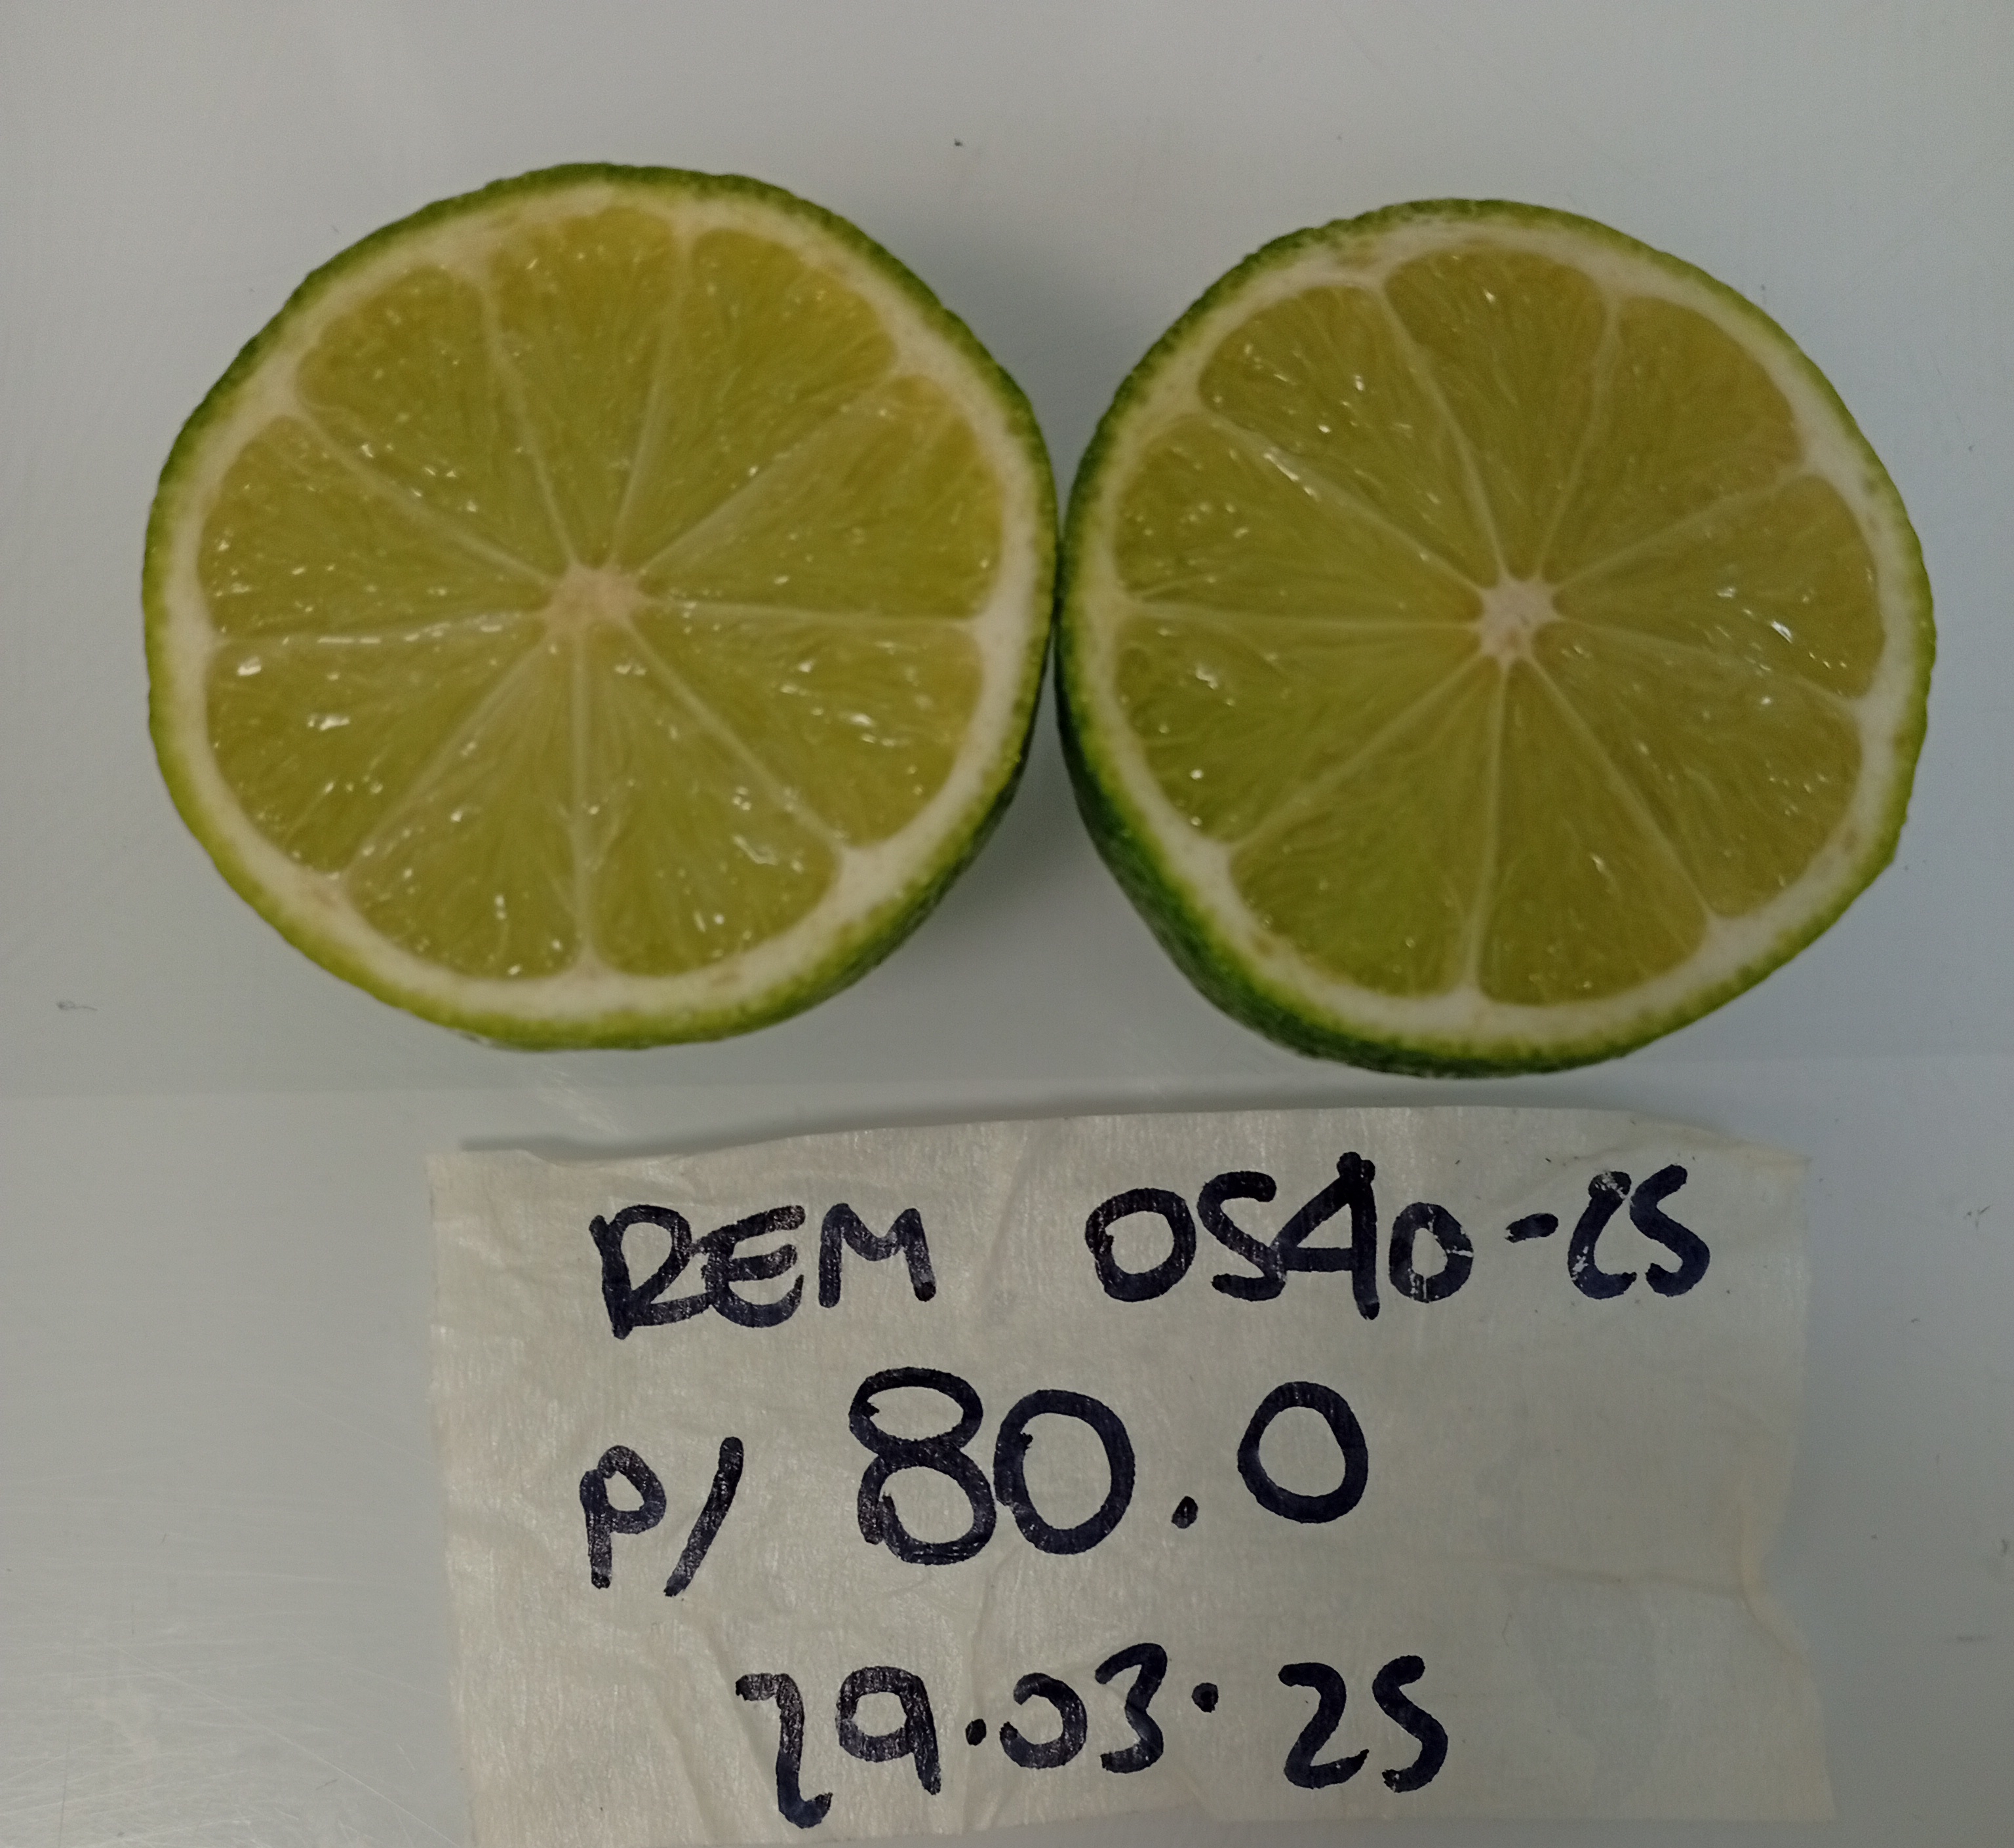 REM 0540-25
P/ 80.0
29.03.25